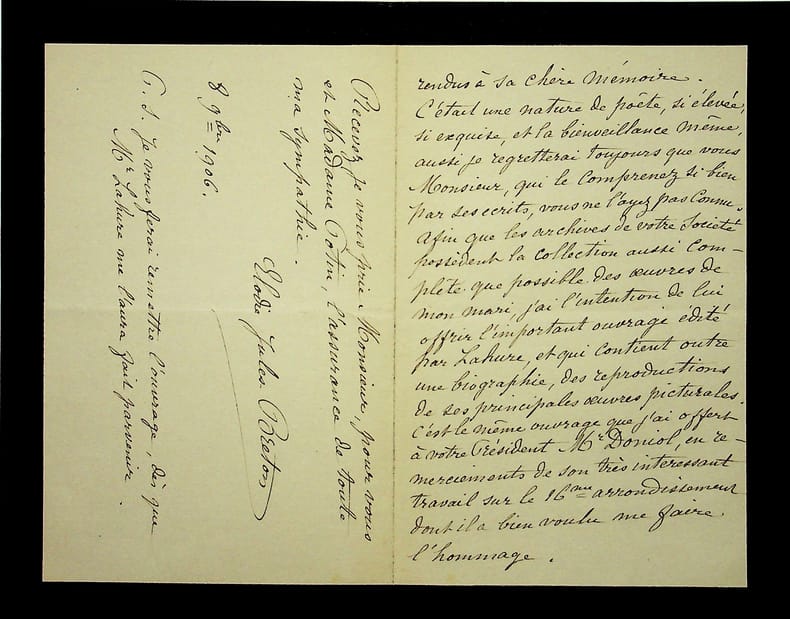 rendus à sa chère mémoire.
C'était une nature de poète, si élevée,
si exquise, et la bienveillance même,
aussi je regretterai toujours que vous
Monsieur, qui le comprenez si bien
par ses écrits, vous ne l'ayez pas connu.
Afin que les archives de votre Société
possèdent la collection aussi com-
plète que possible des œuvres de
mon mari, j'ai l'intention de lui
offrir l'important ouvrage édité
par Lahure, et qui contient outre
une biographie, des reproductions
de ses principales œuvres picturales.
C'est le même ouvrage que j'ai offert
à votre Président Mr Doniol, en re-
merciements de son très intéressant
travail sur le 16me arrondissement
dont il a bien voulu me faire
l'hommage.
Recevez je vous prie Monsieur, pour vous
et Madame Potin, l'assurance de toute
ma sympathie.
Elodie Jules Breton
8 9bre 1906.
P. S. Je vous ferai remettre l'ouvrage, dès que
Mr Lahure me l'aura fait parvenir.